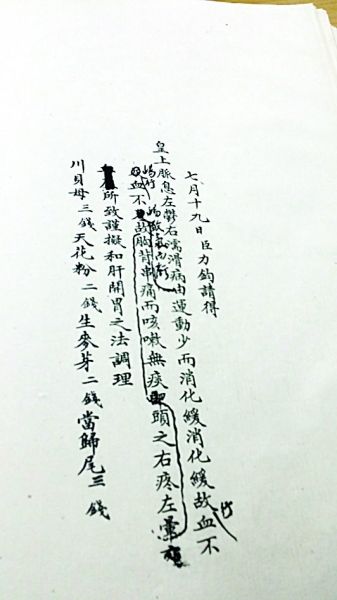 七月十九日臣力鈞請得
皇上脈息左鬱右濡滑病由運動少而消化緩消化緩故血不
血不故胸背串痛而咳嗽無痰頭之右疼左
所致謹擬和肝開胃之法調理
川貝母三錢天花粉二錢生麥芽二錢當歸尾三錢